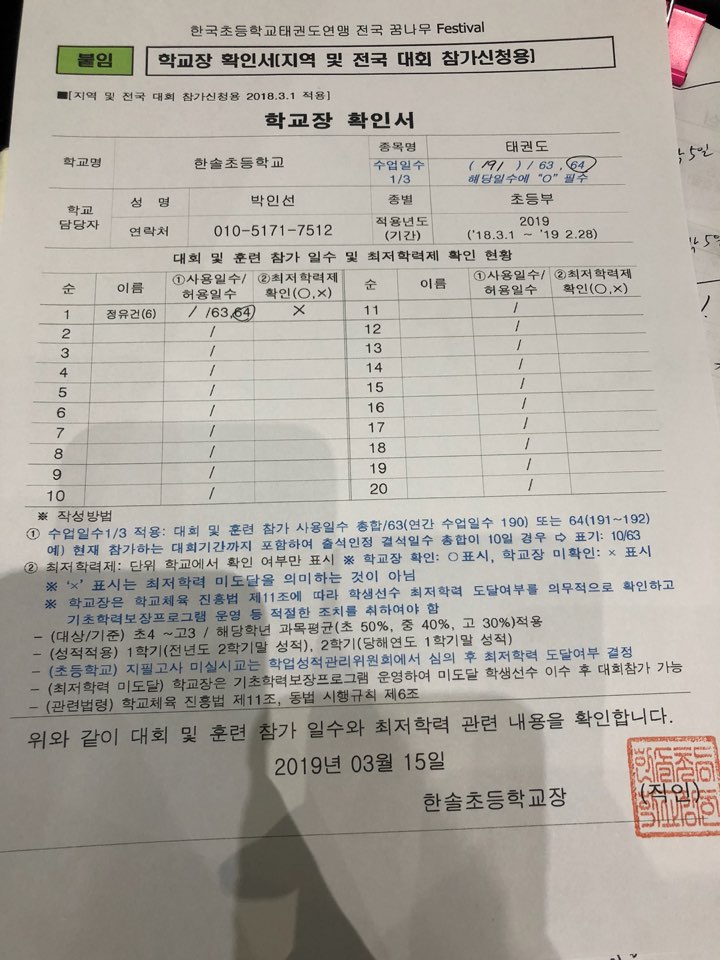 한국초등학교태권도연맹 전국 꿈나무 Festival
붙임 학교장 확인서(지역 및 전국 대회 참가신청용)
■[지역 및 전국 대회 참가신청용 2018.3.1 적용]
학교장 확인서
학교명 한솔초등학교 종목명 태권도
수업일수 1/3 ( 191 ) / 63 , 64
해당일수에 "O" 필수
학교 담당자 성 명 박인선 종별 초등부
연락처 010-5171-7512 적용년도 (기간) 2019
('18.3.1 ~ '19 2.28)
대회 및 훈련 참가 일수 및 최저학력제 확인 현황
순 이름 ①사용일수/허용일수 ②최저학력제 확인(○,×) 순 이름 ①사용일수/허용일수 ②최저학력제 확인(○,×)
1 정유건(6) / /63,64 × 11 /
2 / 12 /
3 / 13 /
4 / 14 /
5 / 15 /
6 / 16 /
7 / 17 /
8 / 18 /
9 / 19 /
10 / 20 /
※ 작성방법
① 수업일수1/3 적용: 대회 및 훈련 참가 사용일수 총합/63(연간 수업일수 190) 또는 64(191~192)
예) 현재 참가하는 대회기간까지 포함하여 출석인정 결석일수 총합이 10일 경우 ⇨ 표기: 10/63
② 최저학력제: 단위 학교에서 확인 여부만 표시 ※ 학교장 확인: ○표시, 학교장 미확인: × 표시
※ '×' 표시는 최저학력 미도달을 의미하는 것이 아님
※ 학교장은 학교체육 진흥법 제11조에 따라 학생선수 최저학력 도달여부를 의무적으로 확인하고
기초학력보장프로그램 운영 등 적절한 조치를 취하여야 함
- (대상/기준) 초4 ~고3 / 해당학년 과목평균(초 50%, 중 40%, 고 30%)적용
- (성적적용) 1학기(전년도 2학기말 성적), 2학기(당해연도 1학기말 성적)
- (초등학교) 지필고사 미실시교는 학업성적관리위원회에서 심의 후 최저학력 도달여부 결정
- (최저학력 미도달) 학교장은 기초학력보장프로그램 운영하여 미도달 학생선수 이수 후 대회참가 가능
- (관련법령) 학교체육 진흥법 제11조, 동법 시행규칙 제6조
위와 같이 대회 및 훈련 참가 일수와 최저학력 관련 내용을 확인합니다.
2019년 03월 15일
한솔초등학교장 (직인)